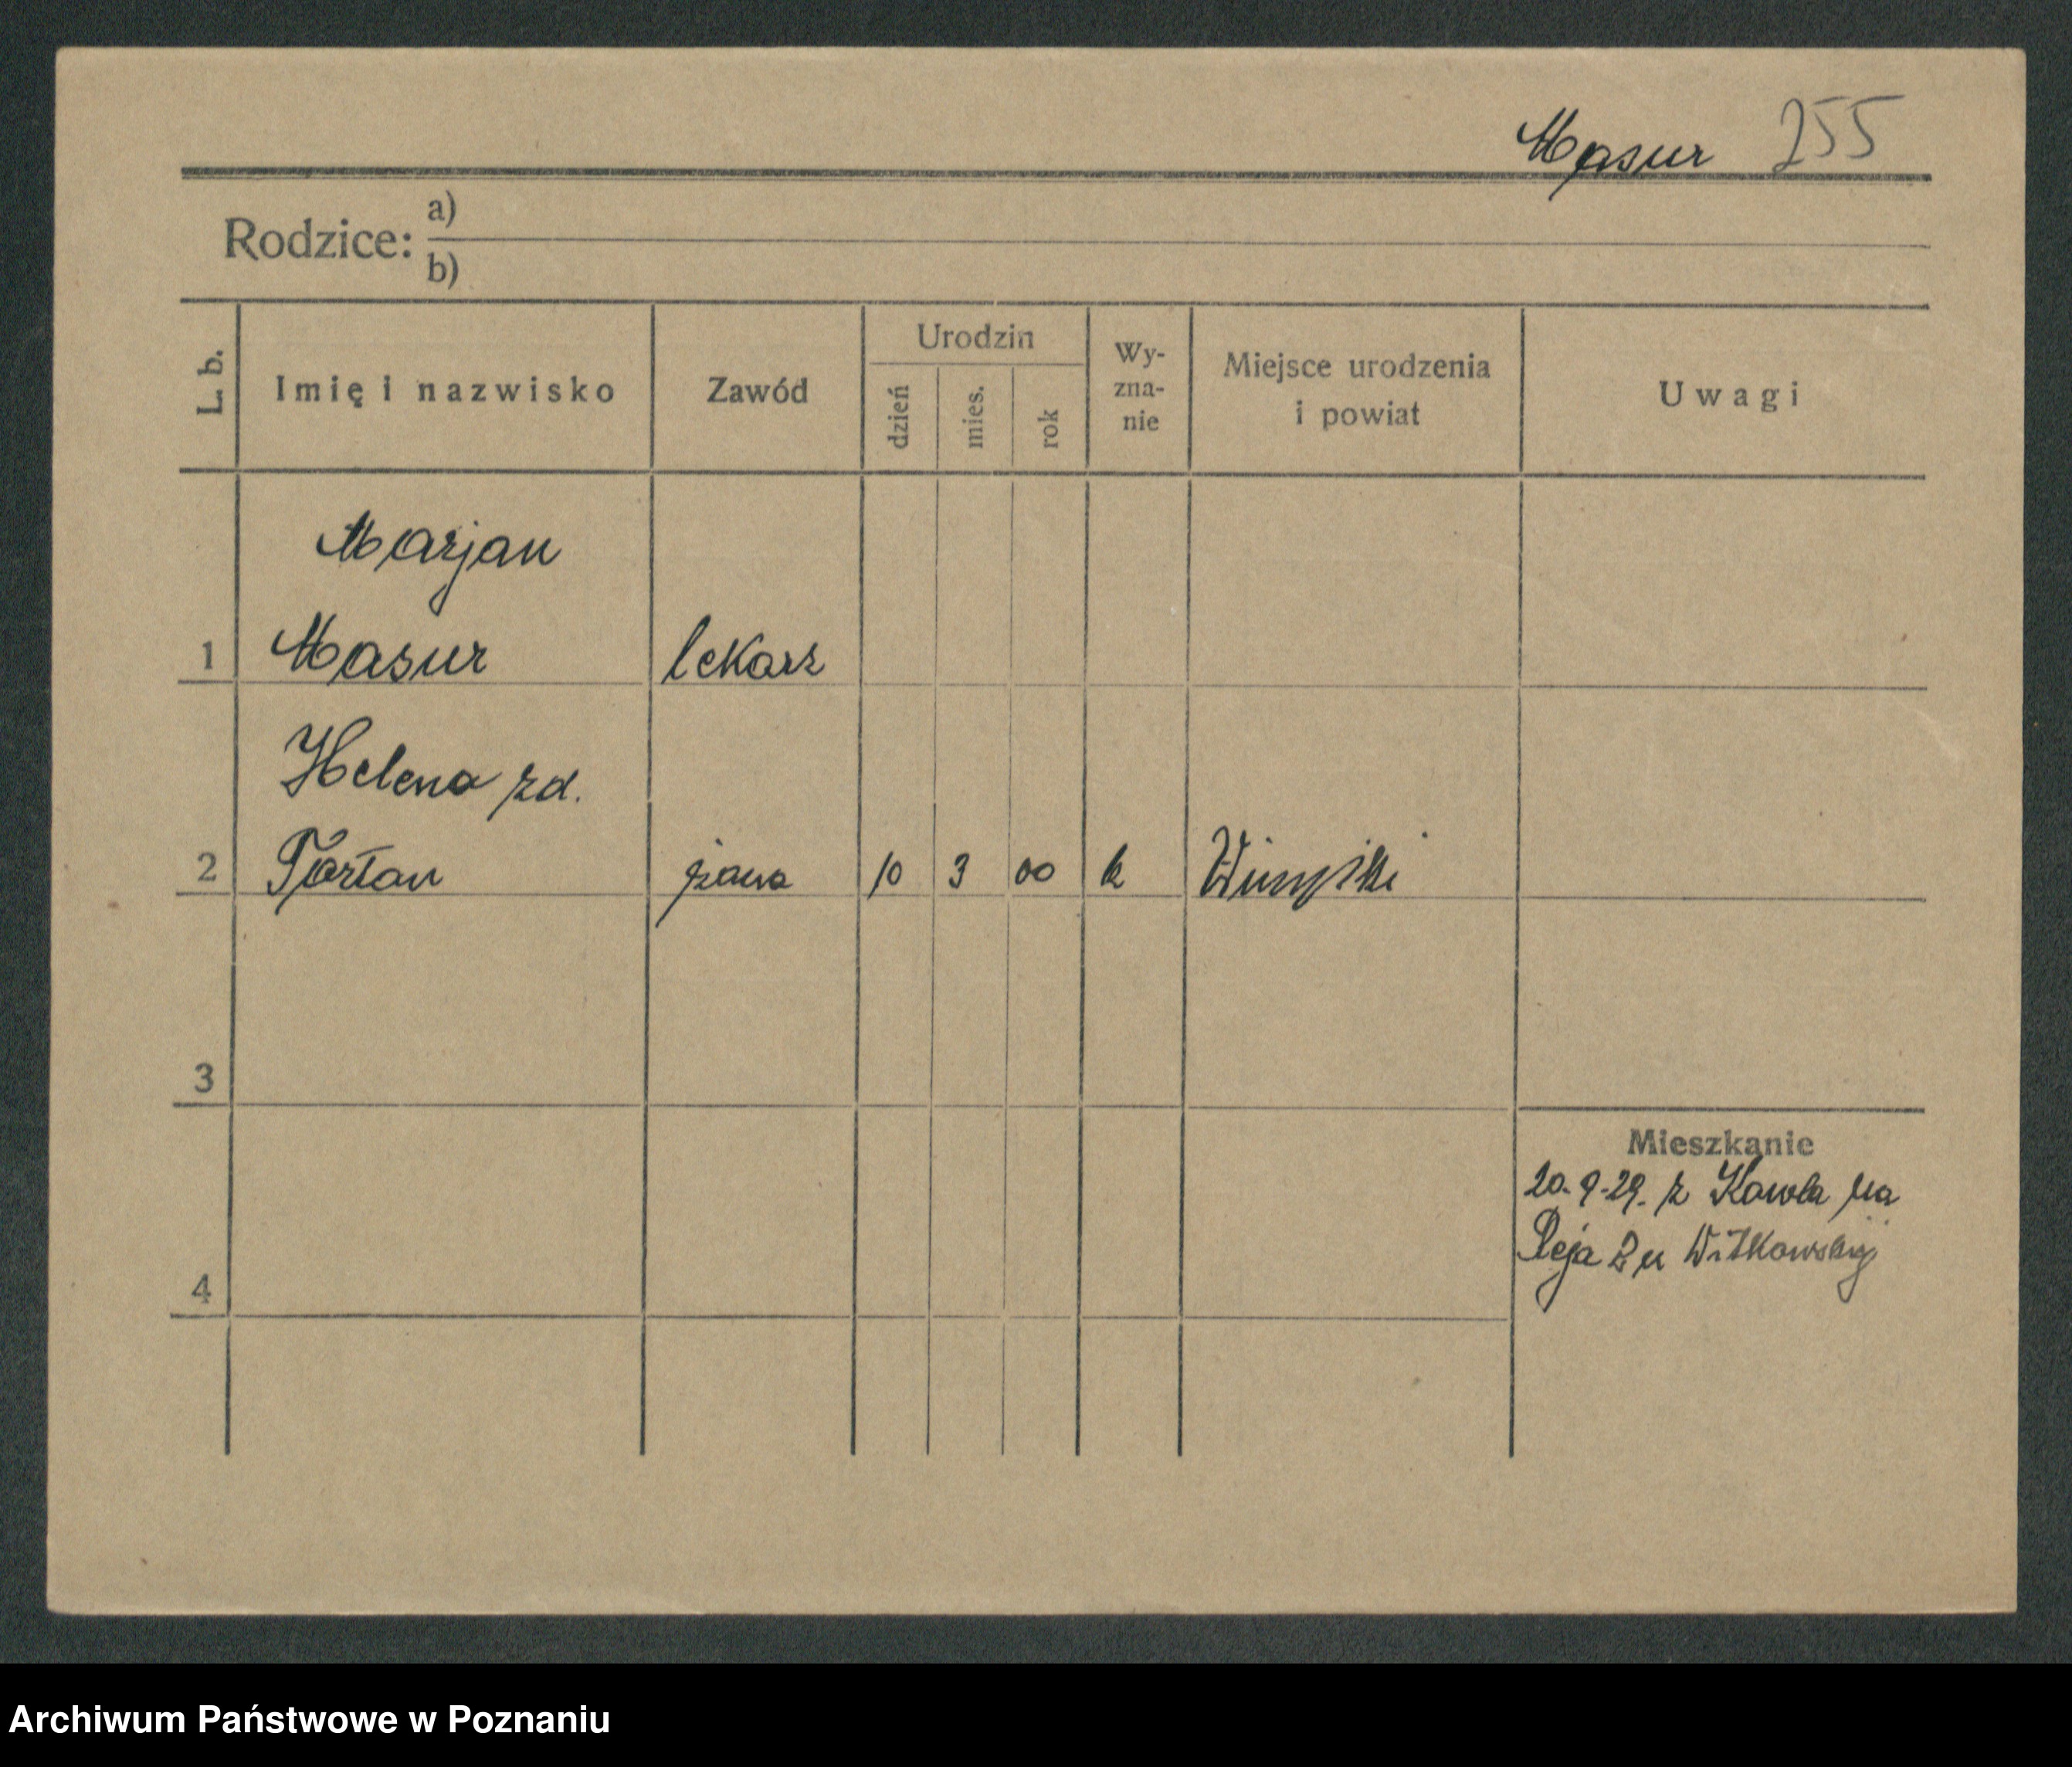 Masur 255
Rodzice: a)
b)
L. b.
Imię i nazwisko
Zawód
Urodzin
dzień
mies.
rok
Wy-
zna-
nie
Miejsce urodzenia
i powiat
Uwagi
Marjan
1 Masur lekarz
Helena zd.
2 żona 10 3 00 k
3
Mieszkanie
20.9.29. z Kowla na
Reja 2 u Witkowskiej
4
Archiwum Państwowe w Poznaniu